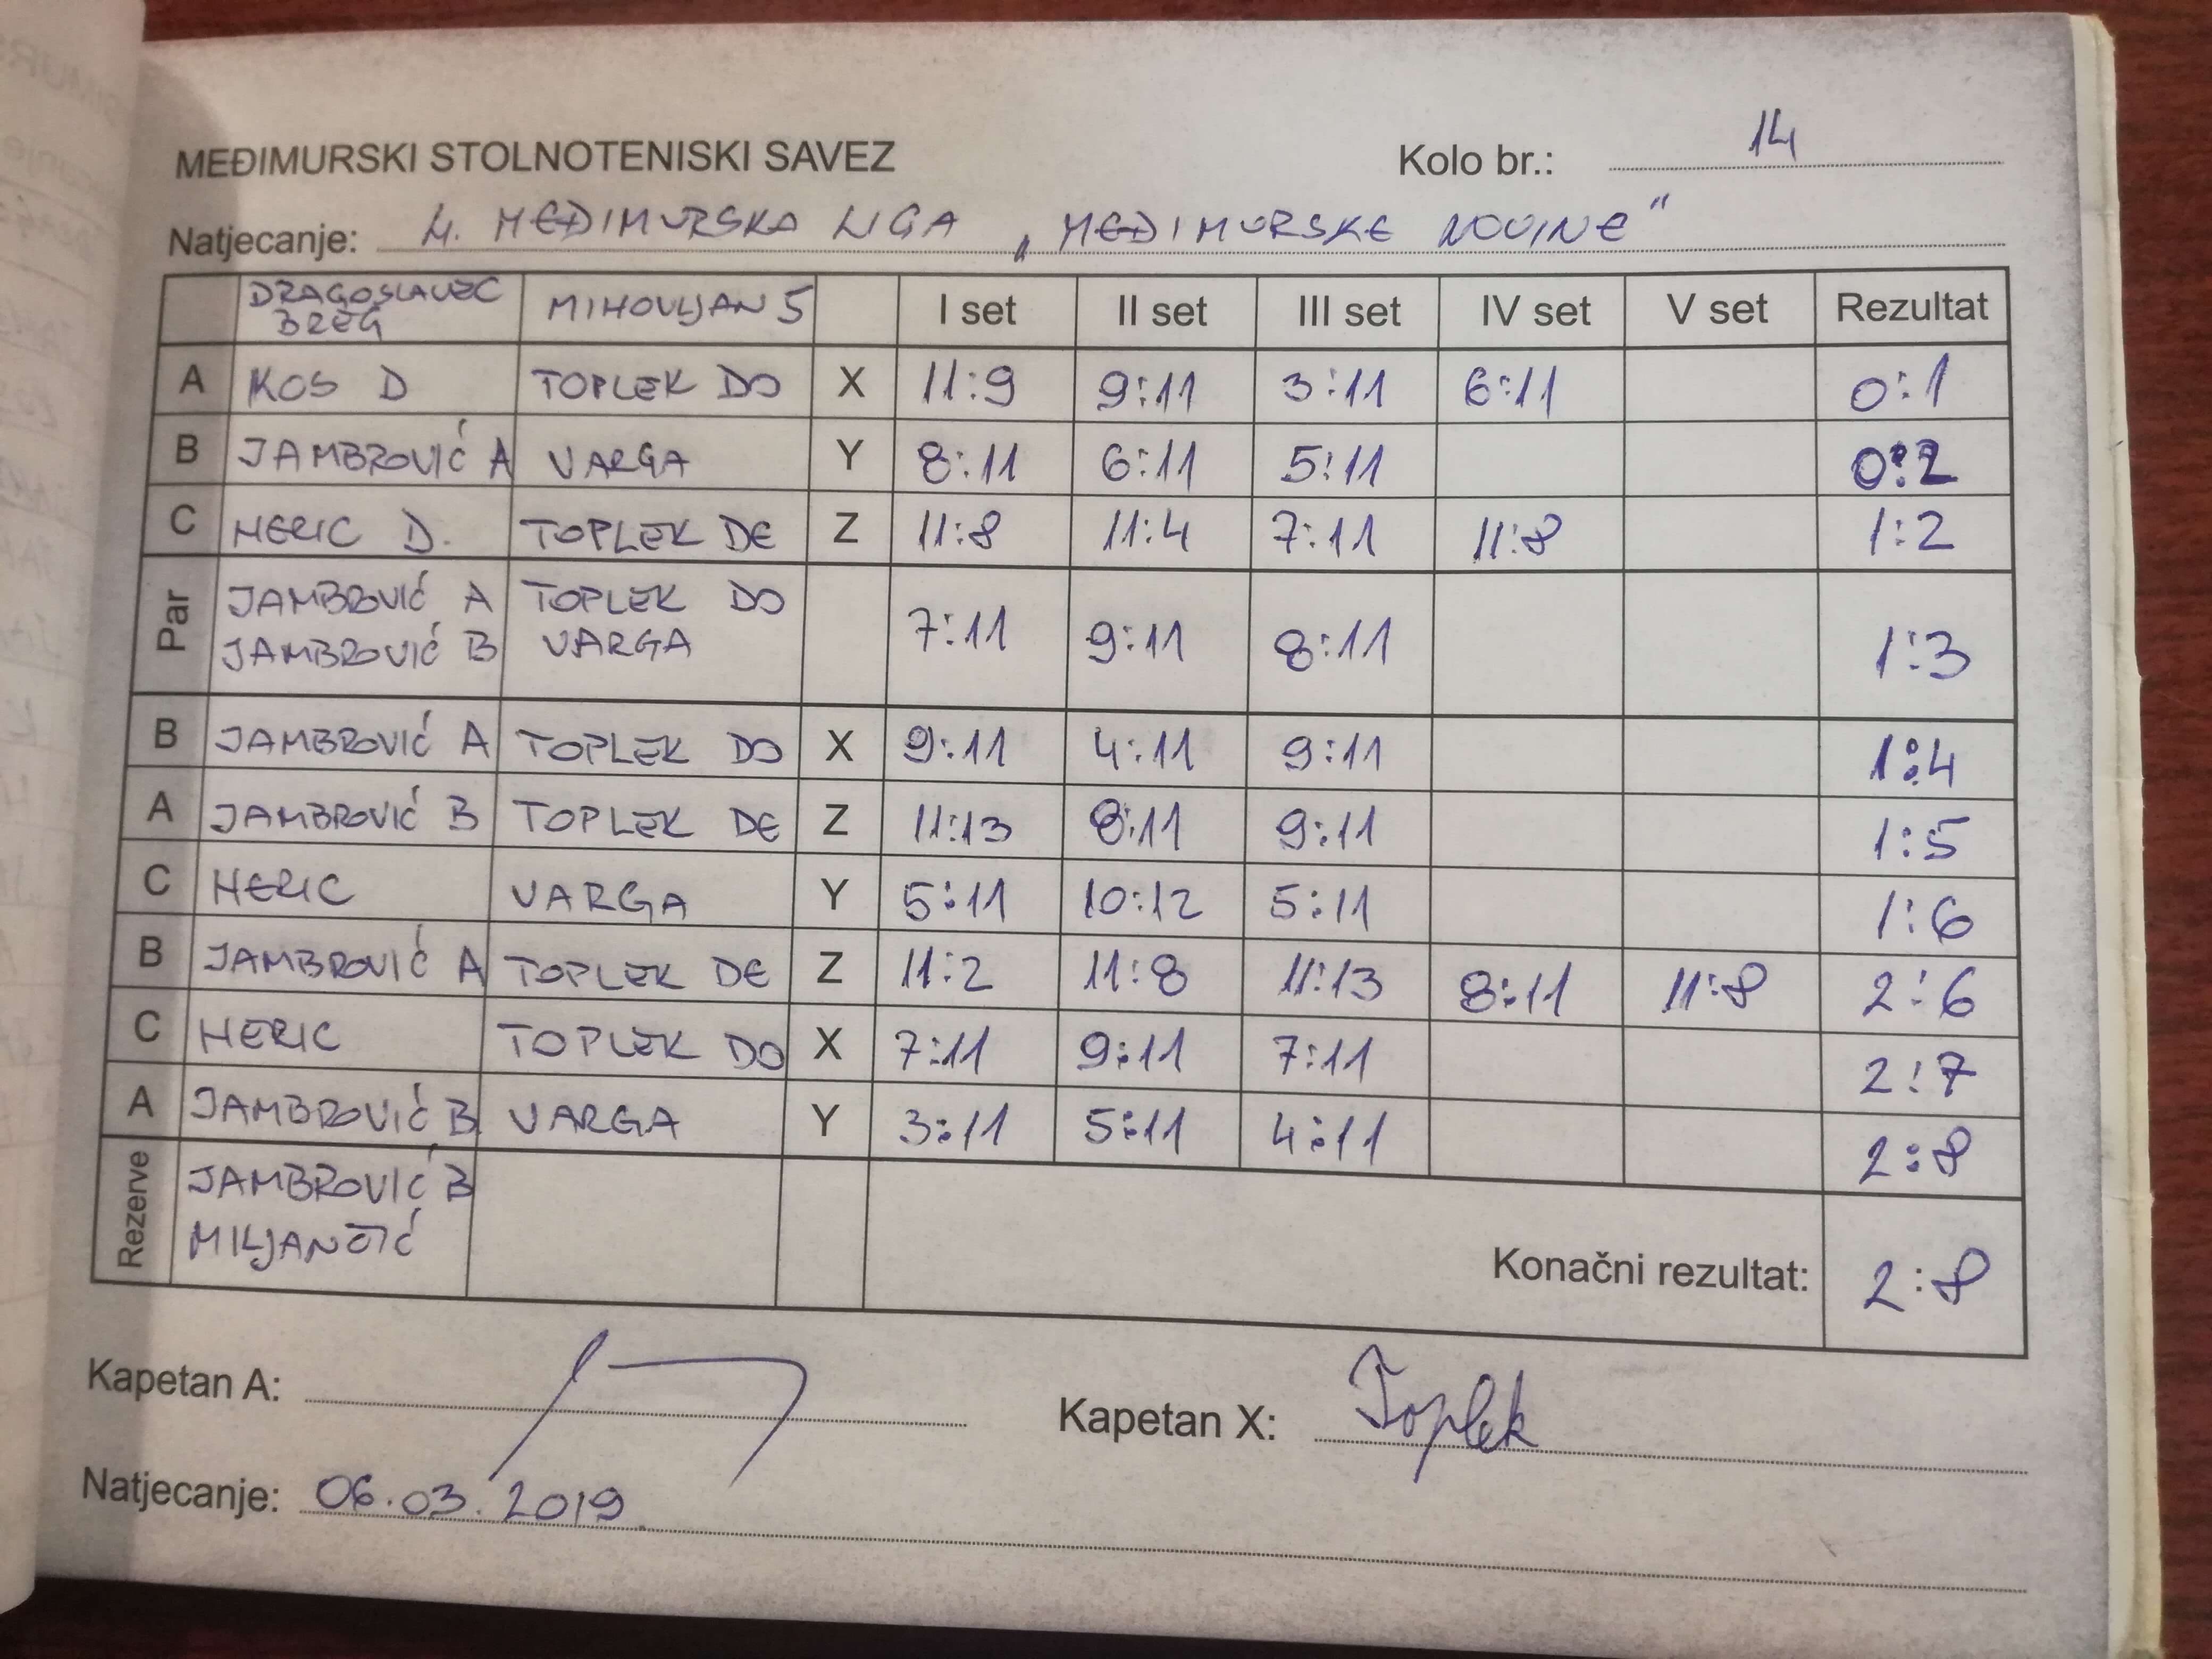 MEĐIMURSKI STOLNOTENISKI SAVEZ Kolo br.: 14
Natjecanje: 4. MEĐIMURSKA LIGA „MEĐIMURSKE NOVINE"
DRAGOSLAVEC BREG MIHOVLJAN 5 I set II set III set IV set V set Rezultat
A KOS D TOPLEK DO X 11:9 9:11 3:11 6:11 0:1
B JAMBROVIĆ A VARGA Y 8:11 6:11 5:11 0:2
C HERIC D. TOPLEK DE Z 11:8 11:4 7:11 11:8 1:2
Par JAMBROVIĆ A TOPLEK DO
JAMBROVIĆ B VARGA 7:11 9:11 8:11 1:3
B JAMBROVIĆ A TOPLEK DO X 9:11 4:11 9:11 1:4
A JAMBROVIĆ B TOPLEK DE Z 11:13 8:11 9:11 1:5
C HERIC VARGA Y 5:11 10:12 5:11 1:6
B JAMBROVIĆ A TOPLEK DE Z 11:2 11:8 11:13 8:11 11:8 2:6
C HERIC TOPLEK DO X 7:11 9:11 7:11 2:7
A JAMBROVIĆ B VARGA Y 3:11 5:11 4:11 2:8
Rezerve JAMBROVIĆ B
Konačni rezultat: 2:8
Kapetan A: Kapetan X: Toplek
Natjecanje: 06.03.2019.